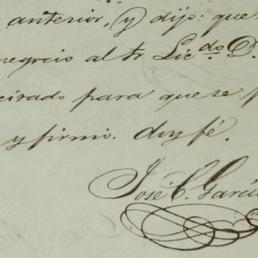 anterior, y dijo: que
negocio al Sr Licdo D.
para que se
y firmó. doy fé.
José C. García